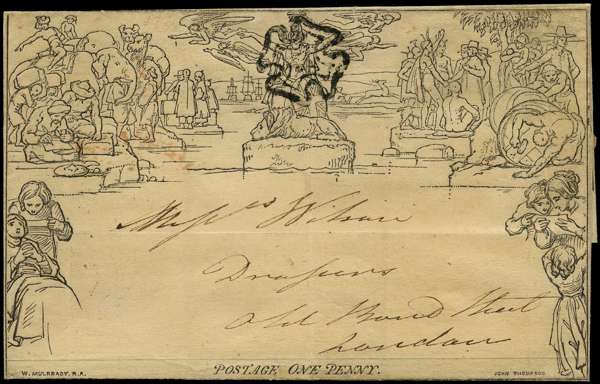 Mess.rs Wilson
Drapers
Old Bond Street
London
POSTAGE ONE PENNY.
W. MULREADY, R.A.
JOHN THOMPSON